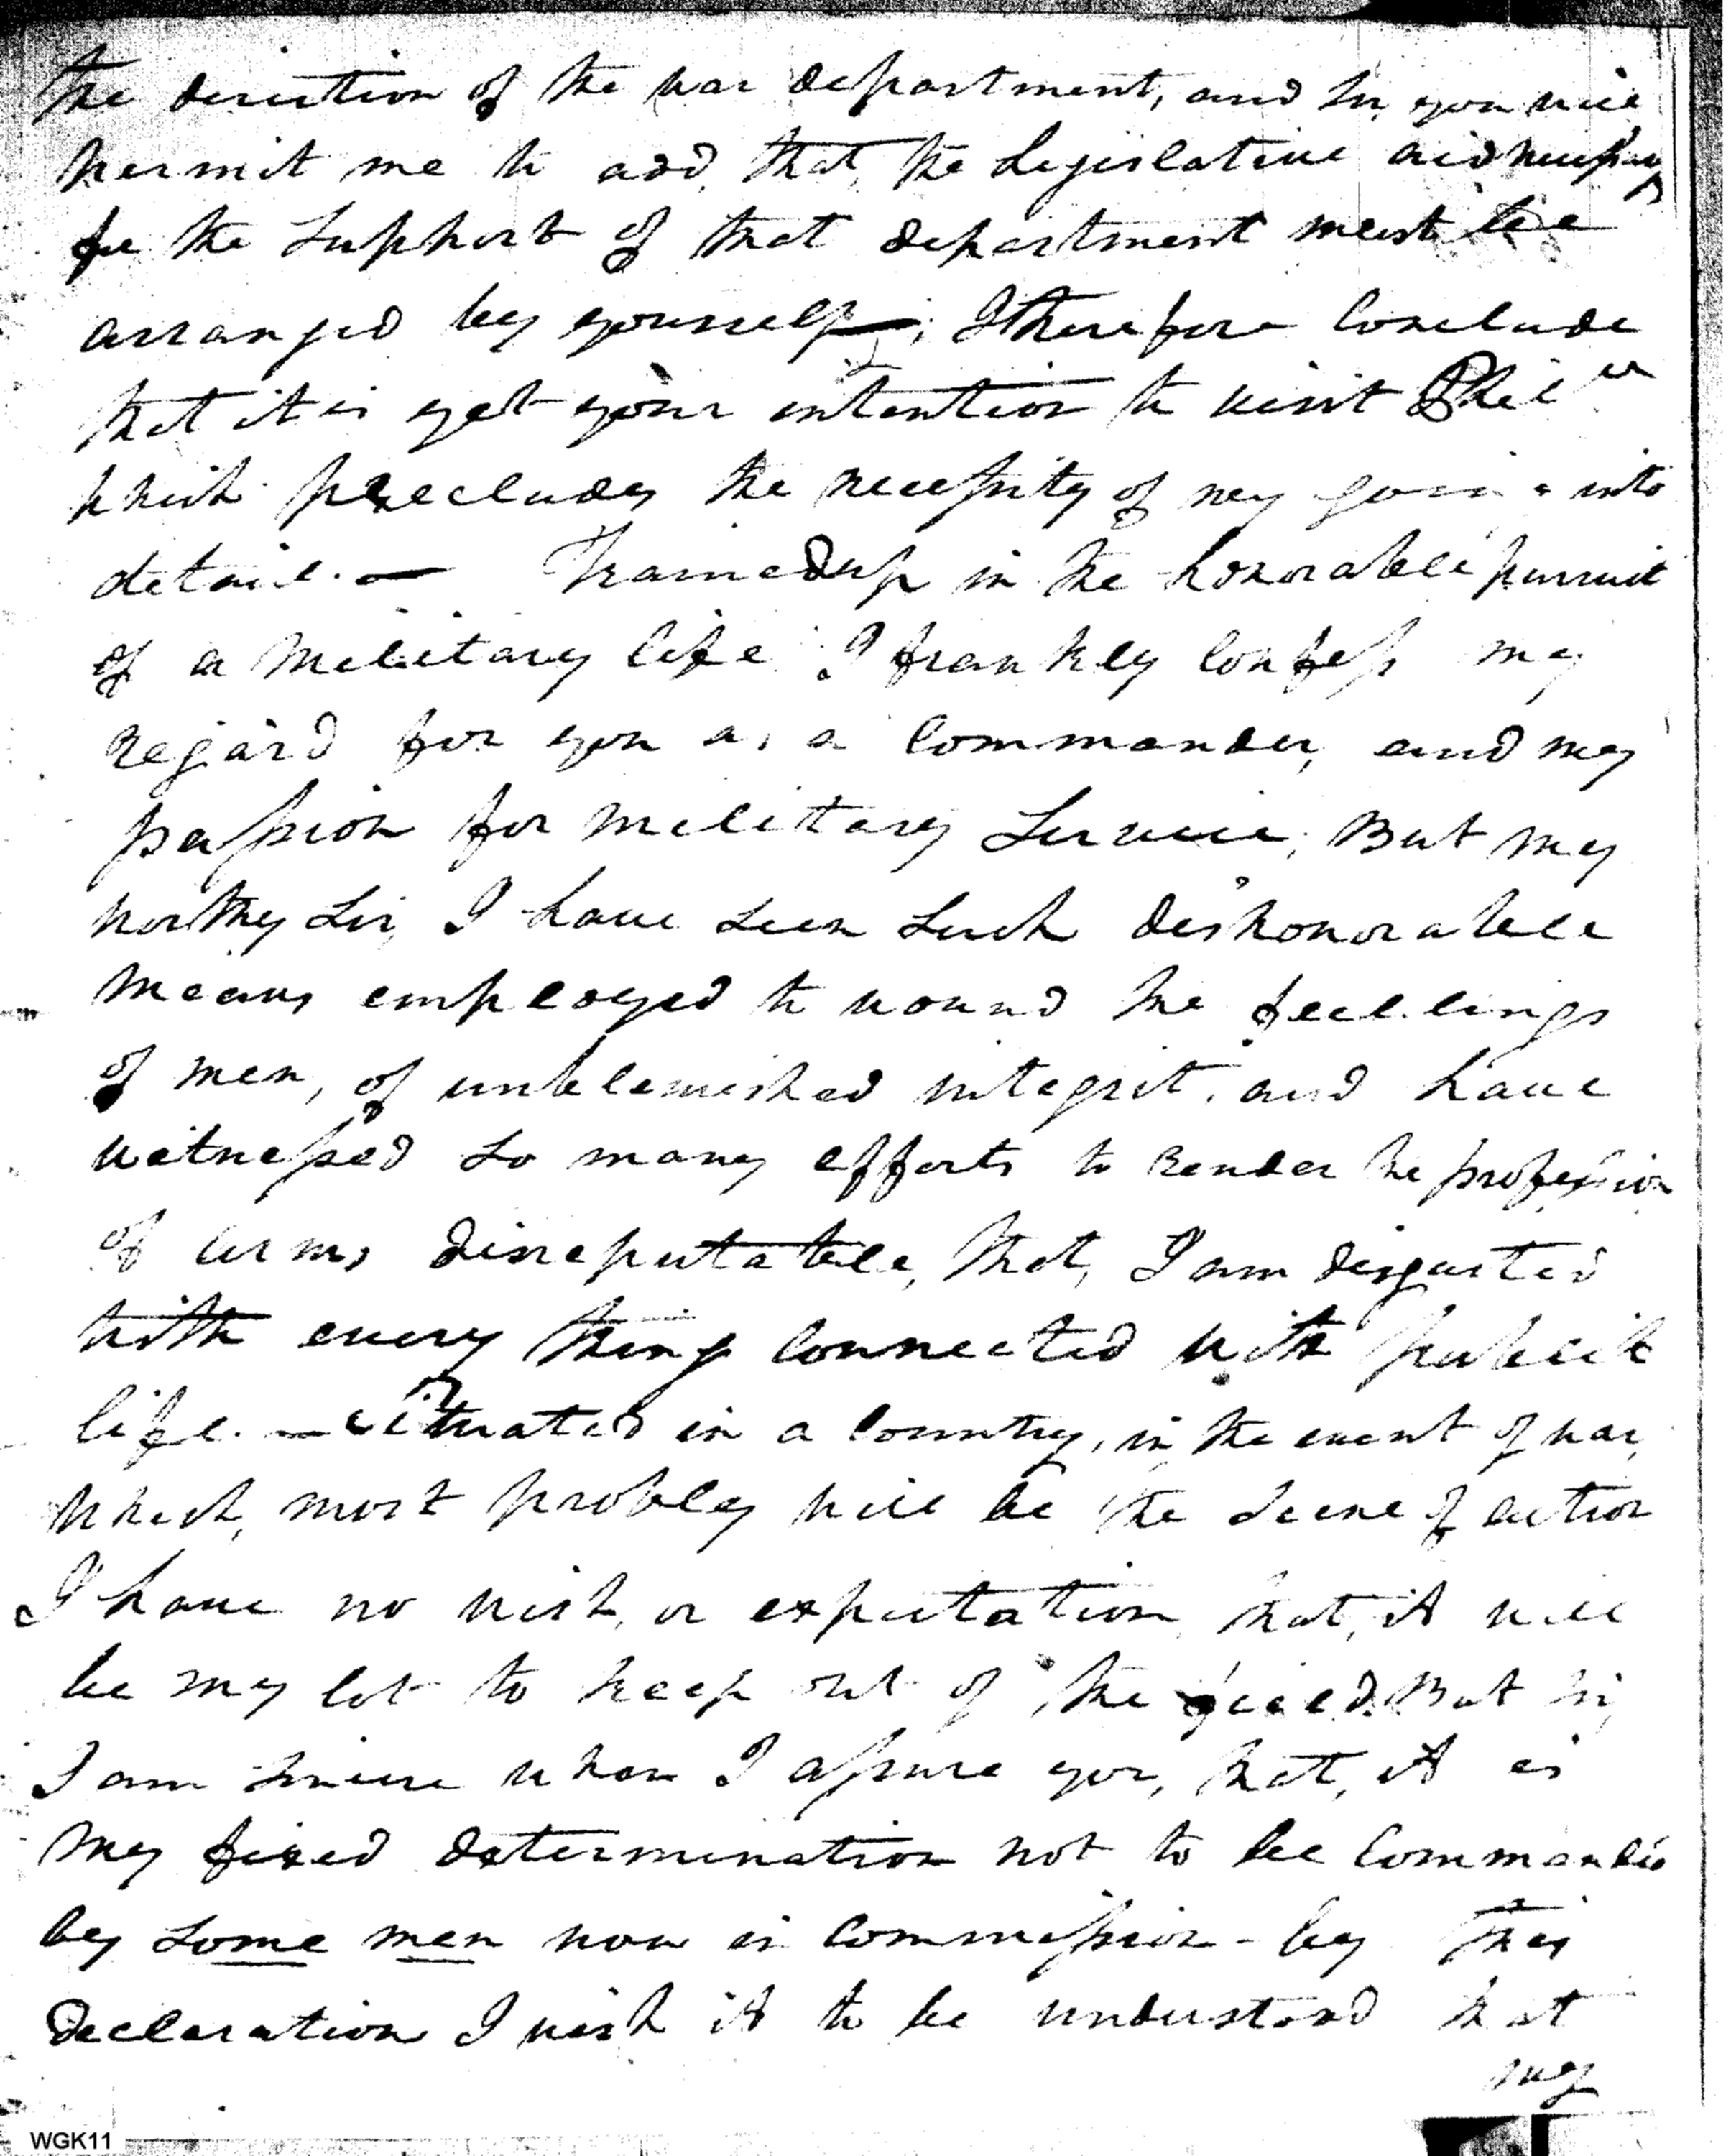 the direction of the war department, and Sir, you will
permit me to add, that, the Legislative aid necessary
for the support of that department must be
arranged by yourself; I therefore conclude
that it is yet your intention to visit Phila
which precludes the necessity of my going into
detail. — Trained up in the honorable pursuit
of a military life I frankly confess my
regard for you as a Commander, and my
passion for military Service; But my
worthy Sir, I have seen such dishonorable
means employed to wound the feelings
of men, of unblemished integrity and have
witnessed so many efforts to render the profession
of arms disreputable, that, I am disgusted
with every thing connected with publick
life. — Situated in a Country, in the event of war,
which, most probley will be the scene of action
I have no wish, or expectation, that, it will
be my lot to keep out of the field. But Sir,
I am sincere when I assure you, that, it is
my fixed determination not to be Commanded
by some men now in Commission - by this
Declaration I wish it to be understood that
my
WGK11